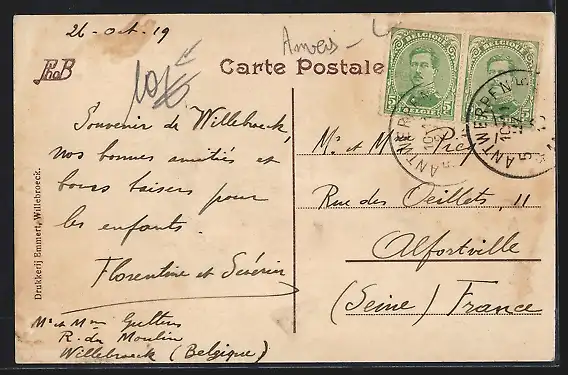 26 - oct. 19
Anvers -
PhoB
Carte Postale
BELGIQUE
BELGIQUE
5 BELGIE 5
ANTWERPEN
ANTWERPEN
5
Souvenir de Willebroeck,
nos bonnes amitiés et
bons baisers pour
les enfants.
Florentine et Séverin
Mr et Mme Gultens
R. du Moulin
Willebroeck (Belgique)
Mr et Mme
Rue des Oeillets, 11
Alfortville
(Seine) France
Drukkerij Emmert, Willebroeck.